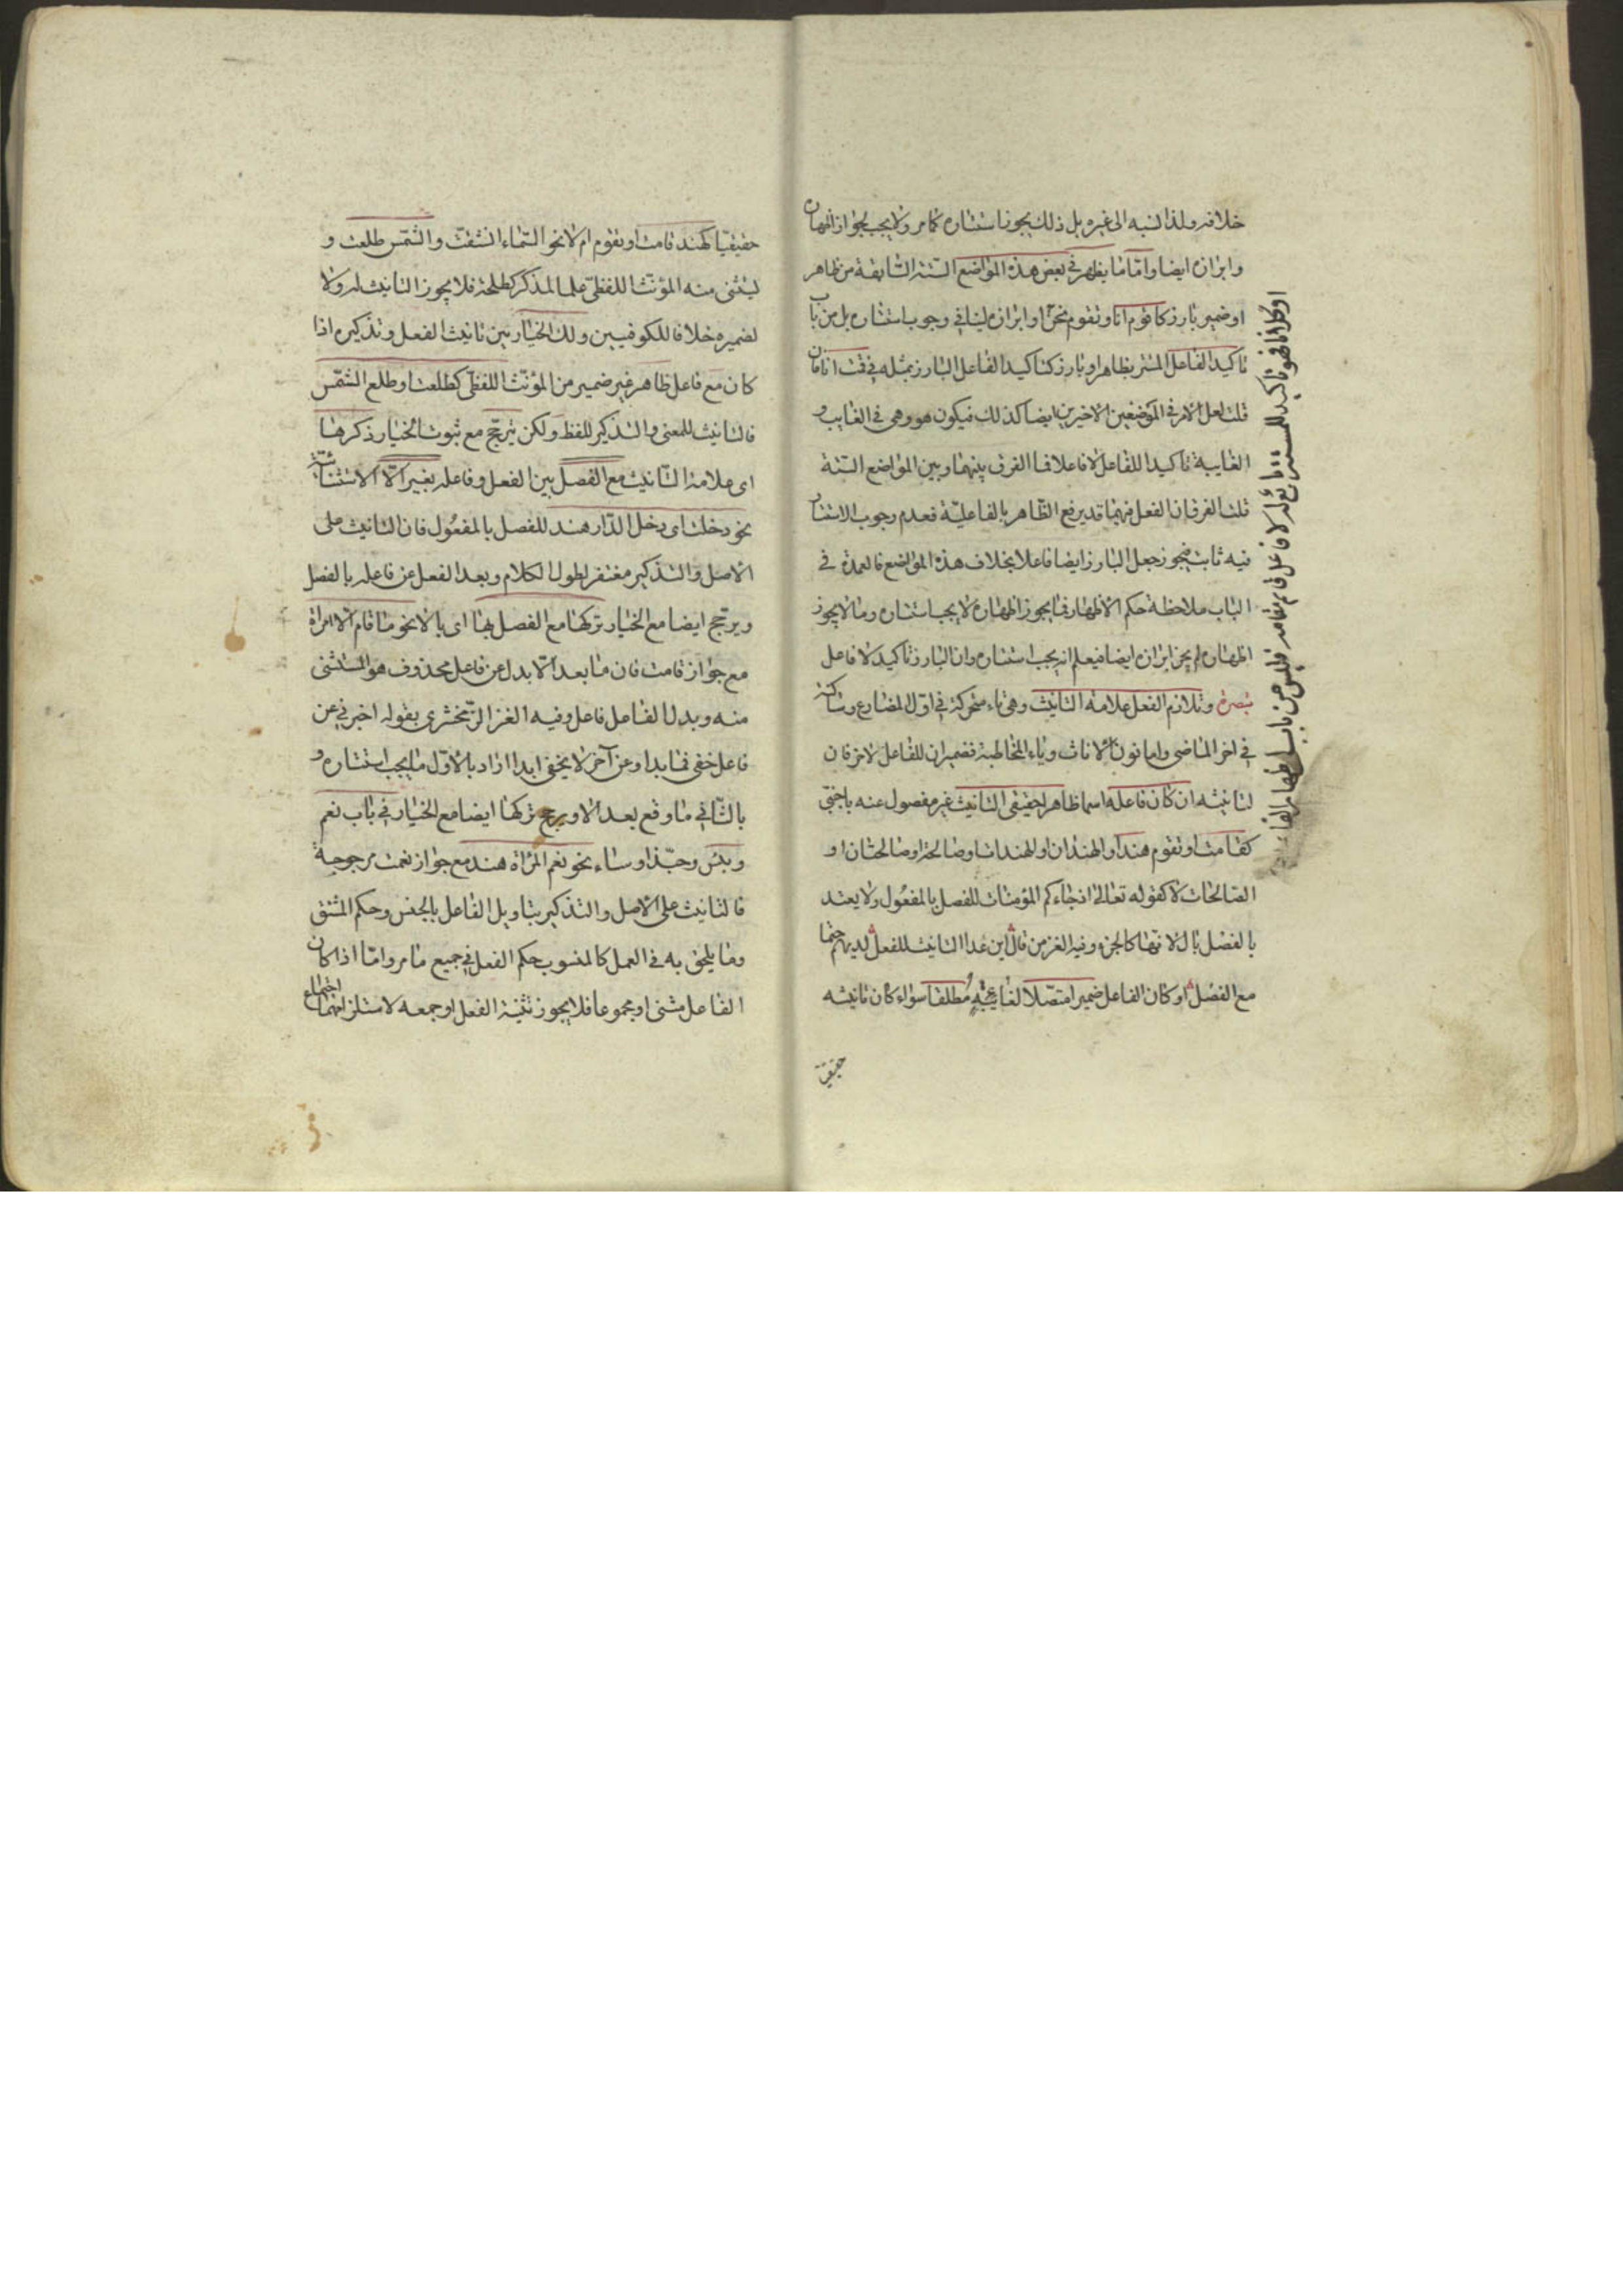 خلافه ولذا نسبه الى غيره بل ذلك يجوز استتاره كما مر ولا يجب لجواز اظهاره
وابرازه ايضا واما ما يظهر في بعض هذه المواضع الستة السابقة من ظاهر
او ضمير بارز كاقوم انا ونقوم نحن او ابرازه لينافي وجوب استتاره بل من باب
تاكيد الفاعل المستتر بظاهر او بارز كتاكيد الفاعل البارز بمثله في قمت انا فان
قلت لعل الامر في الموضعين الاخيرين ايضا كذلك فيكون هو وهي في الغايب و
الغايبة تاكيدا للفاعل لا فاعلا فما الفرق بينهما وبين المواضع الستة
قلت الفرق ان الفعل فيهما قد يرفع الظاهر بالفاعلية فعدم وجوب الاستتار
فيه ثابت فيجوز جعل البارز ايضا فاعلا بخلاف هذه المواضع فالعمدة في
الباب ملاحظة حكم الاظهار فما يجوز اظهاره لا يجب استتاره وما لا يجوز
اظهاره لم يجز ابرازه ايضا فيعلم انه يجب استتاره وان البارز تاكيد لا فاعل
تبصرة وتلازم الفعل علامة التانيث وهي تاء متحركة في اول المضارع وساكنة
في اخر الماضي واما نون الاناث وياء المخاطبة فضميران للفاعل لا حرفان
لتانيثه ان كان فاعله اسما ظاهرا حقيقي التانيث غير مفصول عنه باجنبي
كقامت او تقوم هند او الهندان او الهندات او صالحة او صالحتان او
الصالحات لا كقوله تعالى اذ جاءكم المؤمنات للفصل بالمفعول ولا يعتد
بالفصل بال لانها كالجزء وفيه الغز من قال اين غدا التانيث للفعل لديهم حتما
مع الفصل او كان الفاعل ضميرا متصلا لغايبة مطلقا سواء كان تانيثه
حقيقيا
حقيقيا كهند قامت او تقوم ام لا نحو السماء انشقت والشمس طلعت و
يستثنى منه المؤنث اللفظي علما لمذكر كطلحة فلا يجوز التانيث له ولا
لضميره خلافا للكوفيين ولك الخيار بين تانيث الفعل وتذكيره اذا
كان مع فاعل ظاهر غير ضمير من المؤنث اللفظي كطلعت او طلع الشمس
فالتانيث للمعنى والتذكير للفظ ولكن يترجح مع ثبوت الخيار ذكرها
اى علامة التانيث مع الفصل بين الفعل وفاعله بغير الا الاستثنائية
نحو دخلت اى دخل الدار هند للفصل بالمفعول فان التانيث على
الاصل والتذكير مغتفر لطول الكلام وبعد الفعل عن فاعله بالفصل
ويرجح ايضا مع الخيار تركها مع الفصل بها اى بالا نحو ما قام الا امراة
مع جواز قامت فان ما بعد الا بدل عن فاعل محذوف هو المستثنى
منه وبدل الفاعل فاعل وفيه الغز الزمخشري بقوله اخبرني عن
فاعل خفى فما بدا وعن آخر لا يخفى ابدا اراد بالاول ما يجب استتاره و
بالثاني ما وقع بعد الا ويرجح تركها ايضا مع الخيار في باب نعم
وبئس وحبذا وساء نحو نعم المراة هند مع جواز نعمت مرجوحة
فالتانيث على الاصل والتذكير بتاويل الفاعل بالجنس وحكم المشتق
وما يلحق به في العمل كالمنسوب حكم الفعل في جميع ما مر واما اذا كان
الفاعل مثنى او مجموعا فلا يجوز تثنية الفعل او جمعه لاستلزامهما اجتماع